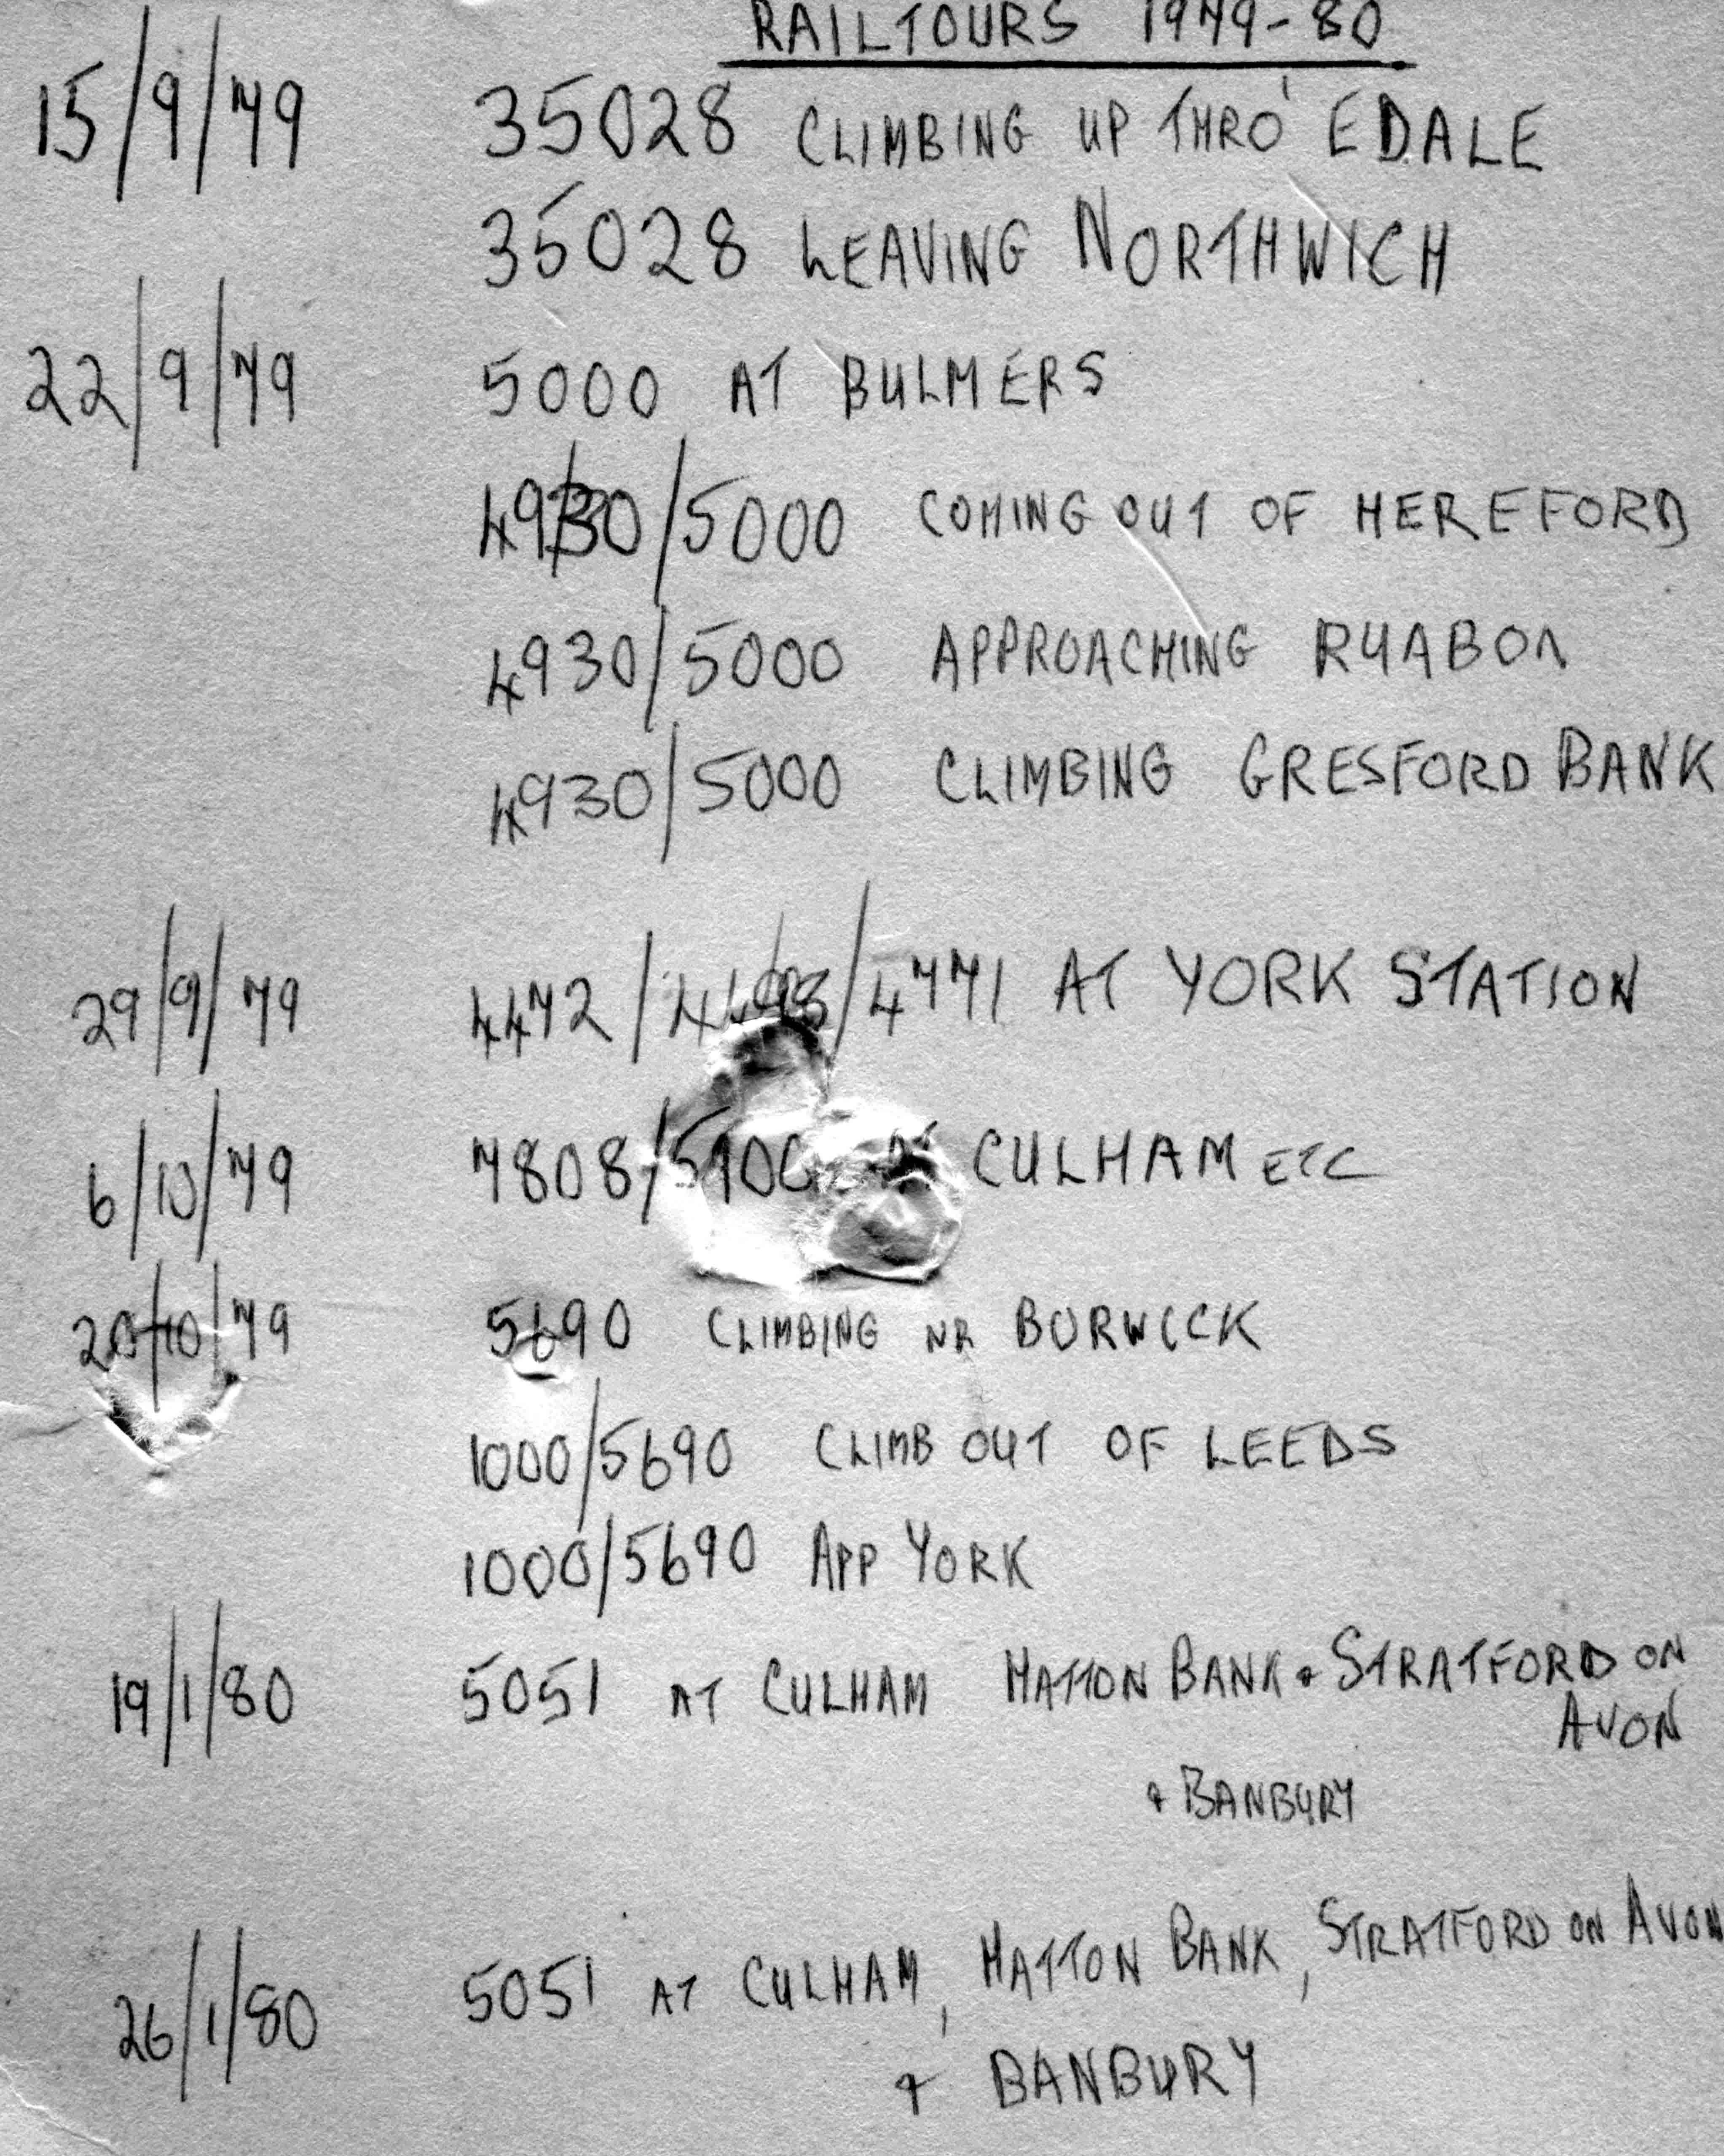 RAILTOURS 1979-80
15/9/79 35028 CLIMBING UP THRO' EDALE
35028 LEAVING NORTHWICH
22/9/79 5000 AT BULMERS
4930/5000 COMING OUT OF HEREFORD
4930/5000 APPROACHING RUABON
4930/5000 CLIMBING GRESFORD BANK
29/9/79 4472/4498/4771 AT YORK STATION
6/10/79 7808/5900 AT CULHAM ETC
20/10/79 5690 CLIMBING NR BORWICK
1000/5690 CLIMB OUT OF LEEDS
1000/5690 APP YORK
19/1/80 5051 AT CULHAM HATTON BANK & STRATFORD ON
AVON
& BANBURY
26/1/80 5051 AT CULHAM, HATTON BANK, STRATFORD ON AVON
& BANBURY